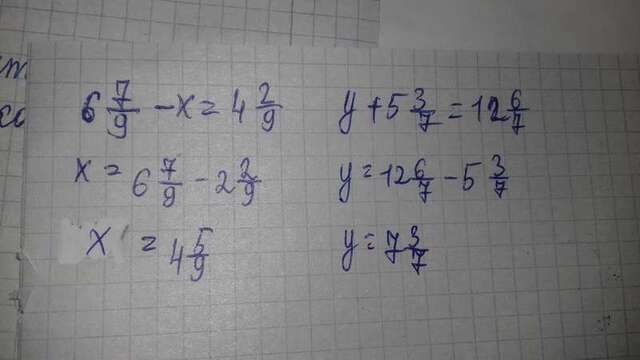 6 7/9 - x = 4 2/9
x = 6 7/9 - 2 2/9
x = 4 5/9
y + 5 3/7 = 12 6/7
y = 12 6/7 - 5 3/7
y = 7 3/7